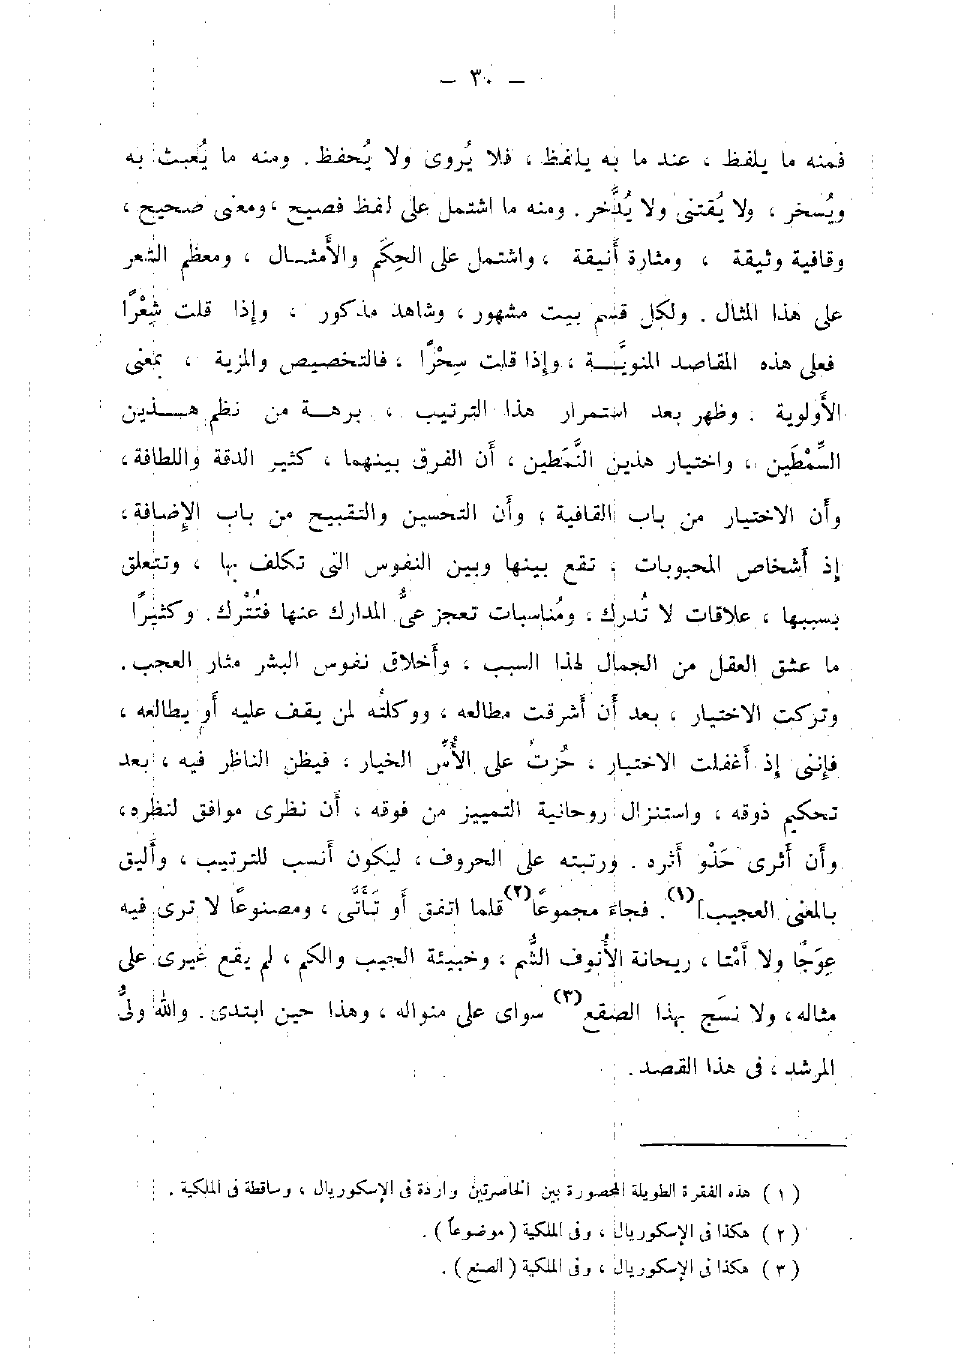 – ٣٠ –
فمنه ما يلفظ ، عند ما به يلفظ ، فلا يُروى ولا يُحفظ . ومنه ما يُعبث به
ويُسخر ، ولا يُقتنى ولا يُدَّخر . ومنه ما اشتمل على لفظ فصيح ، ومعنى صحيح ،
وقافية وثيقة ، ومثارة أنيقة ، واشتمل على الحِكَم والأمثــال ، ومعظم الشعر
على هذا المثال . ولكل قسم بيت مشهور ، وشاهد مذكور ، وإذا قلت شِعْرًا
فعلى هذه المقاصد المنويَّــة ، وإذا قلت سِحْرًا ، فالتخصيص والمزية ، بمعنى
الأولوية . وظهر بعد استمرار هذا الترتيب ، برهــة من نظم هــذين
السِّمْطَين ، واختيار هذين النَّمَطين ، أن الفرق بينهما ، كثير الدقة واللطافة ،
وأن الاختيار من باب القافية ، وأن التحسين والتقبيح من باب الإضافة ،
إذ أشخاص المحبوبات ، تقع بينها وبين النفوس التى تكلف بها ، وتتعلق
بسببها ، علاقات لا تُدرك ، ومُناسبات تعجز عىُّ المدارك عنها فتُتْرك . وكثيرًا
ما عشق العقل من الجمال لهذا السبب ، وأخلاق نفوس البشر مثار العجب .
وتركت الاختيار ، بعد أن أشرقت مطالعه ، ووكلتُه لمن يقف عليه أو يطالعه ،
فإننى إذ أغفلت الاختيار ، حُزتُ على الأُسِّ الخيار ، فيظن الناظر فيه ، بعد
تحكيم ذوقه ، واستنزال روحانية التمييز من فوقه ، أن نظرى موافق لنظره ،
وأن أثرى حَذْو أثره . ورتبته على الحروف ، ليكون أنسب للترتيب ، وأليق
بالمعنى العجيب](١) . فجاءَ مجموعًا(٢) قلما اتفق أو تَأَتَّى ، ومصنوعًا لا ترى فيه
عِوَجًا ولا أمْتا ، ريحانة الأُنوف الشُّم ، وخبيئة الجيب والكم ، لم يقع غيرى على
مثاله ، ولا نسَج بهذا الصقع(٣) سواى على منواله ، وهذا حين ابتدى . والله ولىُّ
المرشد ، فى هذا القصد .
( ١ ) هذه الفقرة الطويلة المحصورة بين الخاصرتين واردة فى الإسكوريال ، وساقطة فى الملكية .
( ٢ ) هكذا فى الإسكوريال ، وفى الملكية ( موضوعاً ) .
( ٣ ) هكذا فى الإسكوريال ، وفى الملكية ( الصنع ) .